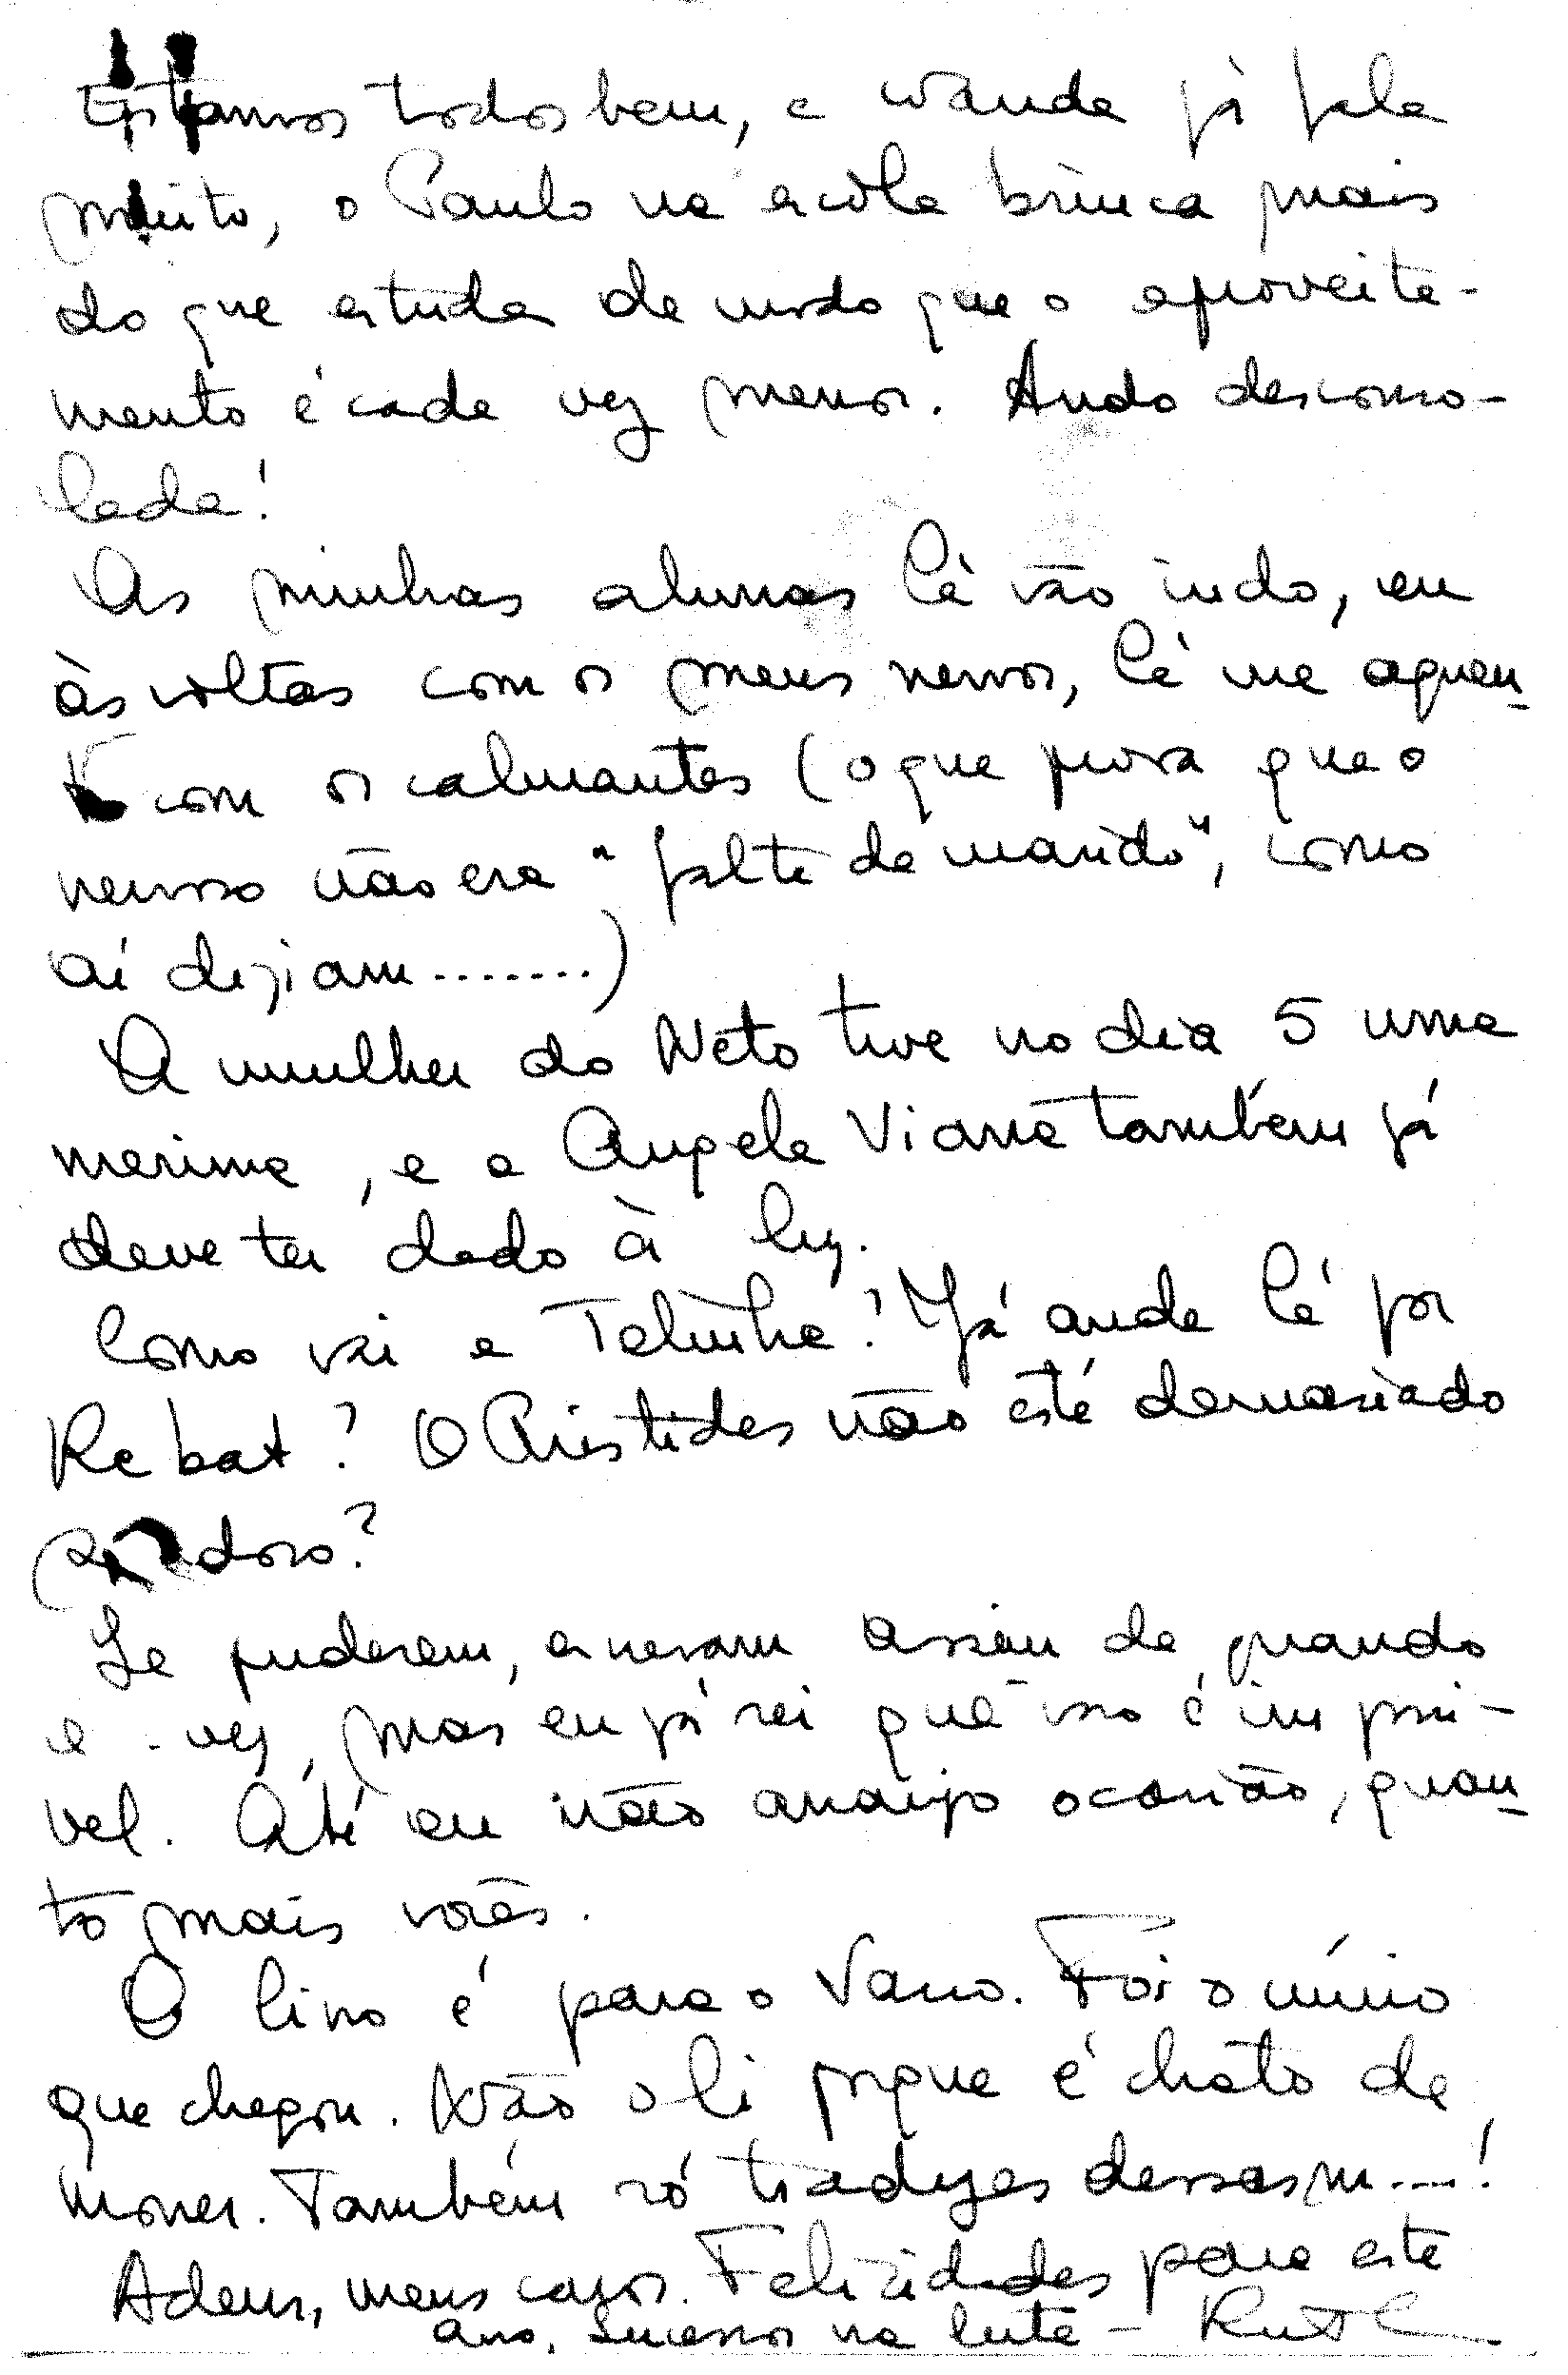 Estamos todos bem, a Wanda já fala
muito, o Paulo na escola brinca mais
do que estuda de modo que o aproveita-
mento é cada vez menor. Ando desconso-
lada!
As minhas alunas lá vão indo, eu
às voltas com os meus nervos, lá me aguen-
to com os calmantes (o que prova que o
nervoso não era "falta de marido", como
aí diziam.......)
A mulher do Neto teve no dia 5 uma
menina, e a Angela Viana também já
deve ter dado à luz.
Como vai a Telinha? Já anda lá por
Rebat? O Aristides não está demasiado
Se puderem, escrevam assim de quando
e. vez, mas eu já sei que isso é impossi-
vel. Até eu não arranjo ocasião, quan-
to mais vocês.
O livro é para o Vano. Foi o único
que chegou. Não o li porque é chato de
morrer. Também só traduzes dessas m....!
Adeus, meus caros. Felicidades para este
ano, sucessos na luta - Ruth